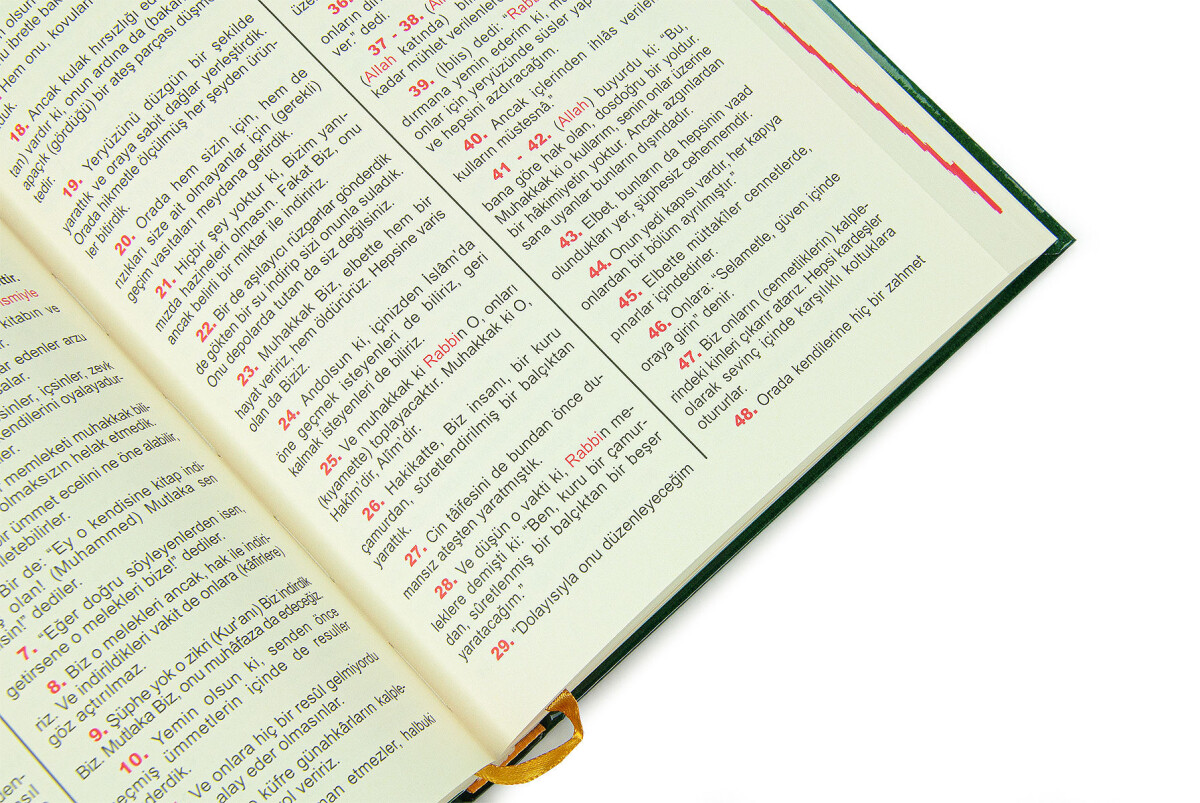 ttir.
ismiyle
kitabın ve
eder edenler arzu
içsinler, zevk
kendilerini oyalayadur-
memleketi muhakkak bili-
olmaksızın helak etmedik.
bir ümmet ecelini ne öne alabilir,
Bir de: “Ey o kendisine kitap indi-
olan! (Muhammed) Mutlaka sen
dediler.
7. “Eğer doğru söyleyenlerden isen,
getirsene o melekleri bize!” dediler.
8. Biz o melekleri ancak, hak ile indiri-
riz. Ve indirildikleri vakit de onlara (kâfirlere)
göz açtırılmaz.
9. Şüphe yok o zikri (Kur'anı) Biz indirdik
Biz. Mutlaka Biz, onu muhâfaza da edeceğiz
10. Yemin olsun ki, senden önce
geçmiş ümmetlerin içinde de resuller
Ve onlara hiç bir resûl gelmiyordu
alay eder olmasınlar.
küfre günahkârların kalple-
veririz.
etmezler, halbuki
18. Ancak kulak hırsızlığı eden
tan) vardır ki, onun ardına da (bakan
apaçık (gördüğü) bir ateş parçası düşmek-
tedir.
19. Yeryüzünü düzgün bir şekilde
yarattık ve oraya sabit dağlar yerleştirdik.
Orada hikmetle ölçülmüş her şeyden ürün-
ler bitirdik.
20. Orada hem sizin için, hem de
rızıkları size ait olmayanlar için (gerekli)
geçim vasıtaları meydana getirdik.
21. Hiçbir şey yoktur ki, Bizim yanı-
mızda hazineleri olmasın. Fakat Biz, onu
ancak belirli bir miktar ile indiririz.
22. Bir de aşılayıcı rüzgarlar gönderdik
de gökten bir su indirip sizi onunla suladık.
Onu depolarda tutan da siz değilsiniz.
23. Muhakkak Biz, elbette hem bir
hayat veririz, hem öldürürüz. Hepsine varis
olan da Biziz.
24. Andolsun ki, içinizden İslâm'da
öne geçmek isteyenleri de biliriz, geri
kalmak isteyenleri de biliriz.
25. Ve muhakkak ki Rabbin O, onları
(kıyamette) toplayacaktır. Muhakkak ki O,
Hakîm'dir, Alîm'dir.
26. Hakikatte, Biz insanı, bir kuru
çamurdan, sûretlendirilmiş bir balçıktan
yarattık.
27. Cin tâifesini de bundan önce du-
mansız ateşten yaratmıştık.
28. Ve düşün o vakti ki, Rabbin me-
leklere demişti ki: “Ben, kuru bir çamur-
dan, sûretlenmiş bir balçıktan bir beşer
yaratacağım.”
29. “Dolayısıyla onu düzenleyeceğim
36.
onların
ver.” dedi.
37 - 38. (Allah
(Allah katında) bilinen
kadar mühlet verilenlerden
39. (İblis) dedi: “Rabb
dırmana yemin ederim ki, mu
onlar için yeryüzünde süsler yap
ve hepsini azdıracağım.
40. Ancak içlerinden ihlâs verilen
kulların müstesnâ.”
41 - 42. (Allah) buyurdu ki: “Bu,
bana göre hak olan, dosdoğru bir yoldur.
Muhakkak ki o kullarım, senin onlar üzerine
bir hâkimiyetin yoktur. Ancak azgınlardan
sana uyanlar bunların dışındadır.
43. Elbet, bunların da hepsinin vaad
olundukları yer, şüphesiz cehennemdir.
44. Onun yedi kapısı vardır, her kapıya
onlardan bir bölüm ayrılmıştır.”
45. Elbette müttakîler cennetlerde,
pınarlar içindedirler.
46. Onlara: “Selametle, güven içinde
oraya girin” denir.
47. Biz onların (cennetliklerin) kalple-
rindeki kinleri çıkarır atarız. Hepsi kardeşler
olarak sevinç içinde karşılıklı koltuklara
otururlar.
48. Orada kendilerine hiç bir zahmet